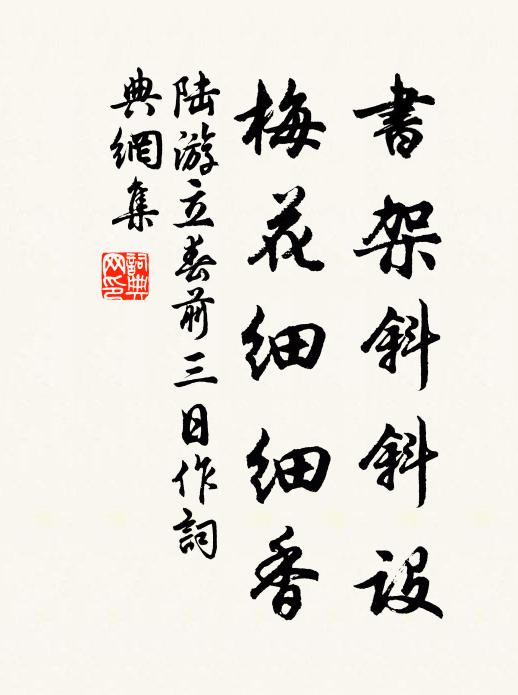 書架斜斜設
梅花細細香
陸游立春前三日作詞
典網集
詞典
网印